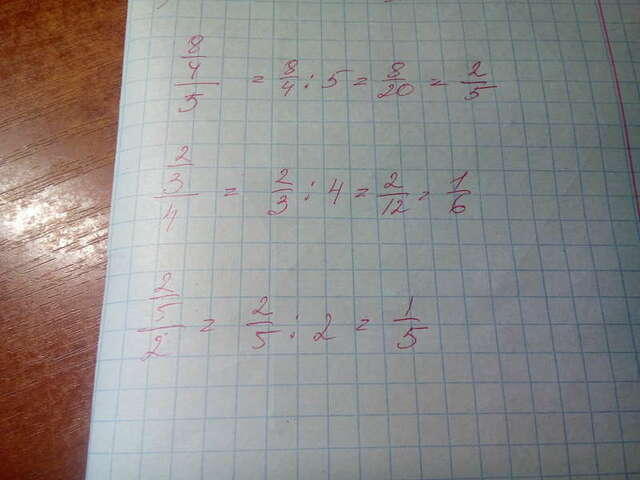 8/4/5 = 8/4 : 5 = 8/20 = 2/5
2/3/4 = 2/3 : 4 = 2/12 = 1/6
2/5/2 = 2/5 : 2 = 1/5